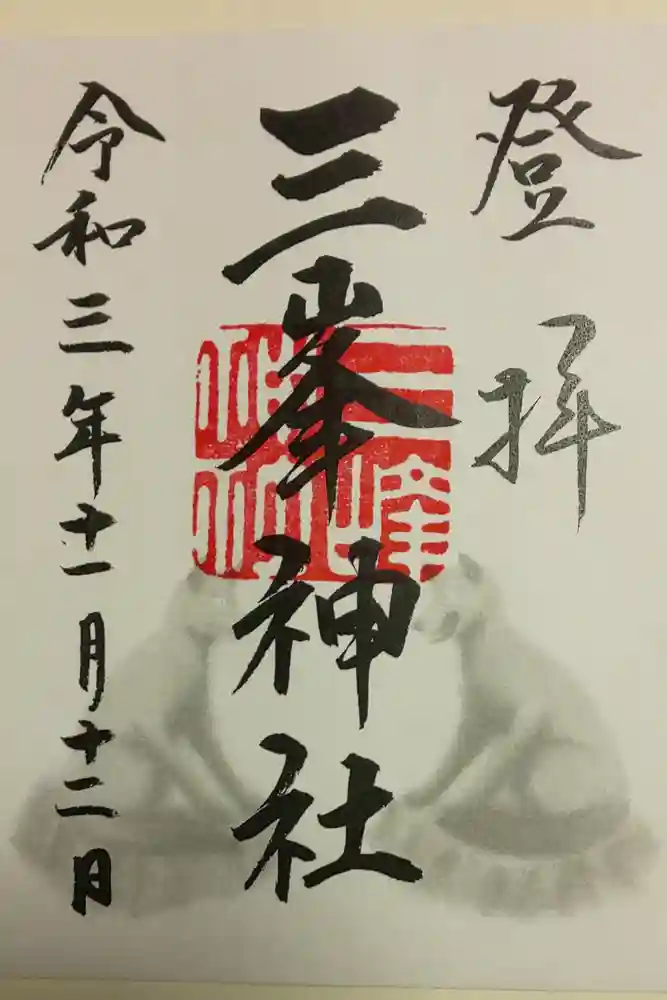 登拝
三峯神社
三峰神社
令和三年十一月十二日